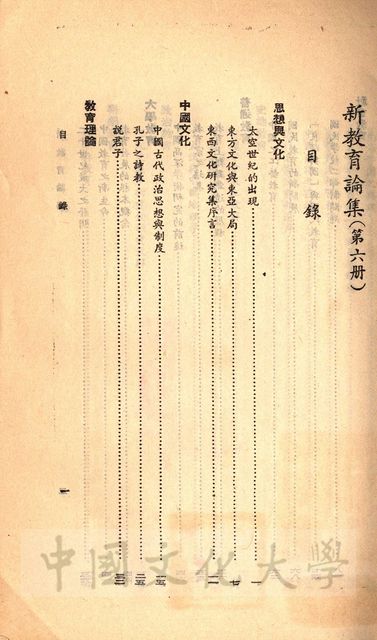 新教育論集(第六册)
目錄
思想與文化
太空世紀的出現……一
東方文化與東亞大局……七
東西文化研究集序言……一一
中國文化
中國古代政治思想與制度……一五
孔子之詩教……二五
説君子……三三
敎育理論
目錄
一
中國文化大學